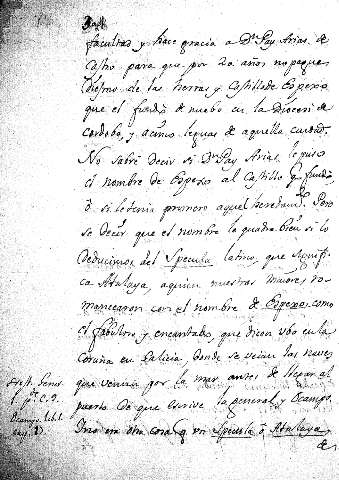 facultad y hace gracia a Dn Pay Arias de
Castro para que por 20 años no pague
diezmo de las tierras y Castillo de Espexo
que el fundò de nuebo en la Diocesi de
Cordoba, y acinco leguas de aquella ciudad.
No sabrè decir si Dn Pay Arias le puso
el nombre de Espexo al Castillo q fundò,
ò si le tenia primero aquel heredamto. Pero
se decir que el nombre le quadra bien si lo
deducimos del Specula latino, que signifi-
ca Atalaya, aquien nuestros maiores ro-
manzearon con el nombre de Espexo como
el fabuloso y encantado, que dicen ubo en la
Coruña en Galicia, donde se veian las naves
que venian por la mar antes de llegar al
puerto de que escrive la general y Ocampo.
Ino era otra cosa q un Specula ò Atalaya
de
Histt. Gener.
f. pte. C. 9.
Ocampo lib. 1.
cap.